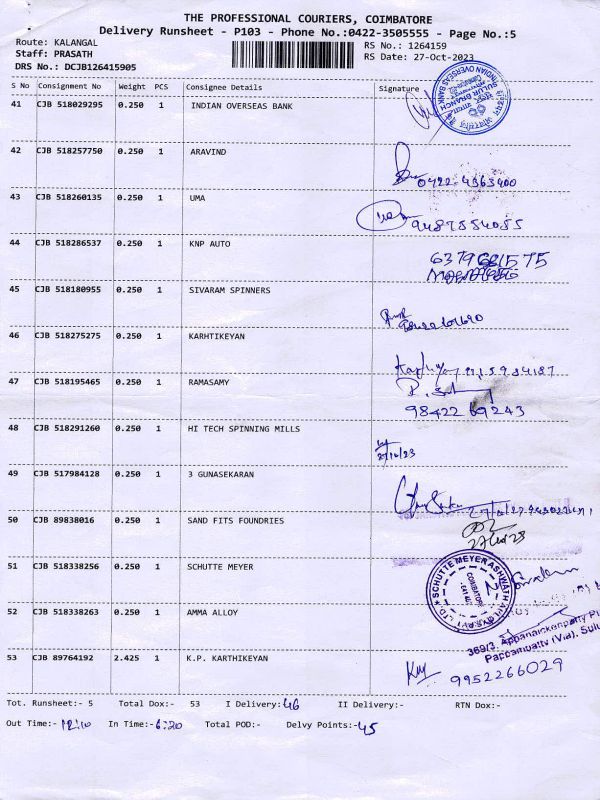 THE PROFESSIONAL COURIERS, COIMBATORE
Delivery Runsheet - P103 - Phone No.:0422-3505555 - Page No.:5
Route: KALANGAL
RS No.: 1264159
Staff: PRASATH
RS Date: 27-Oct-2023
DRS No.: DCJB126415905
S No Consignment No Weight PCS Consignee Details Signature
41 CJB 518029295 0.250 1 INDIAN OVERSEAS BANK
INDIAN OVERSEAS BANK SULUR BRANCH
42 CJB 518257750 0.250 1 ARAVIND
0422-4363400
43 CJB 518260135 0.250 1 UMA
9487554085
44 CJB 518286537 0.250 1 KNP AUTO
45 CJB 518180955 0.250 1 SIVARAM SPINNERS
46 CJB 518275275 0.250 1 KARHTIKEYAN
47 CJB 518195465 0.250 1 RAMASAMY
9842269243
48 CJB 518291260 0.250 1 HI TECH SPINNING MILLS
27/10/23
49 CJB 517984128 0.250 1 3 GUNASEKARAN
50 CJB 89838016 0.250 1 SAND FITS FOUNDRIES
51 CJB 518338256 0.250 1 SCHUTTE MEYER
COIMBATORE
52 CJB 518338263 0.250 1 AMMA ALLOY
369/3, Appanaickenpatty
Pappampatty (Via), Sulu
53 CJB 89764192 2.425 1 K.P. KARTHIKEYAN
9952266029
Tot. Runsheet:- 5 Total Dox:- 53 I Delivery:46 II Delivery:- RTN Dox:-
Out Time:- 12:10 In Time:-6:20 Total POD:- Delvy Points:-45